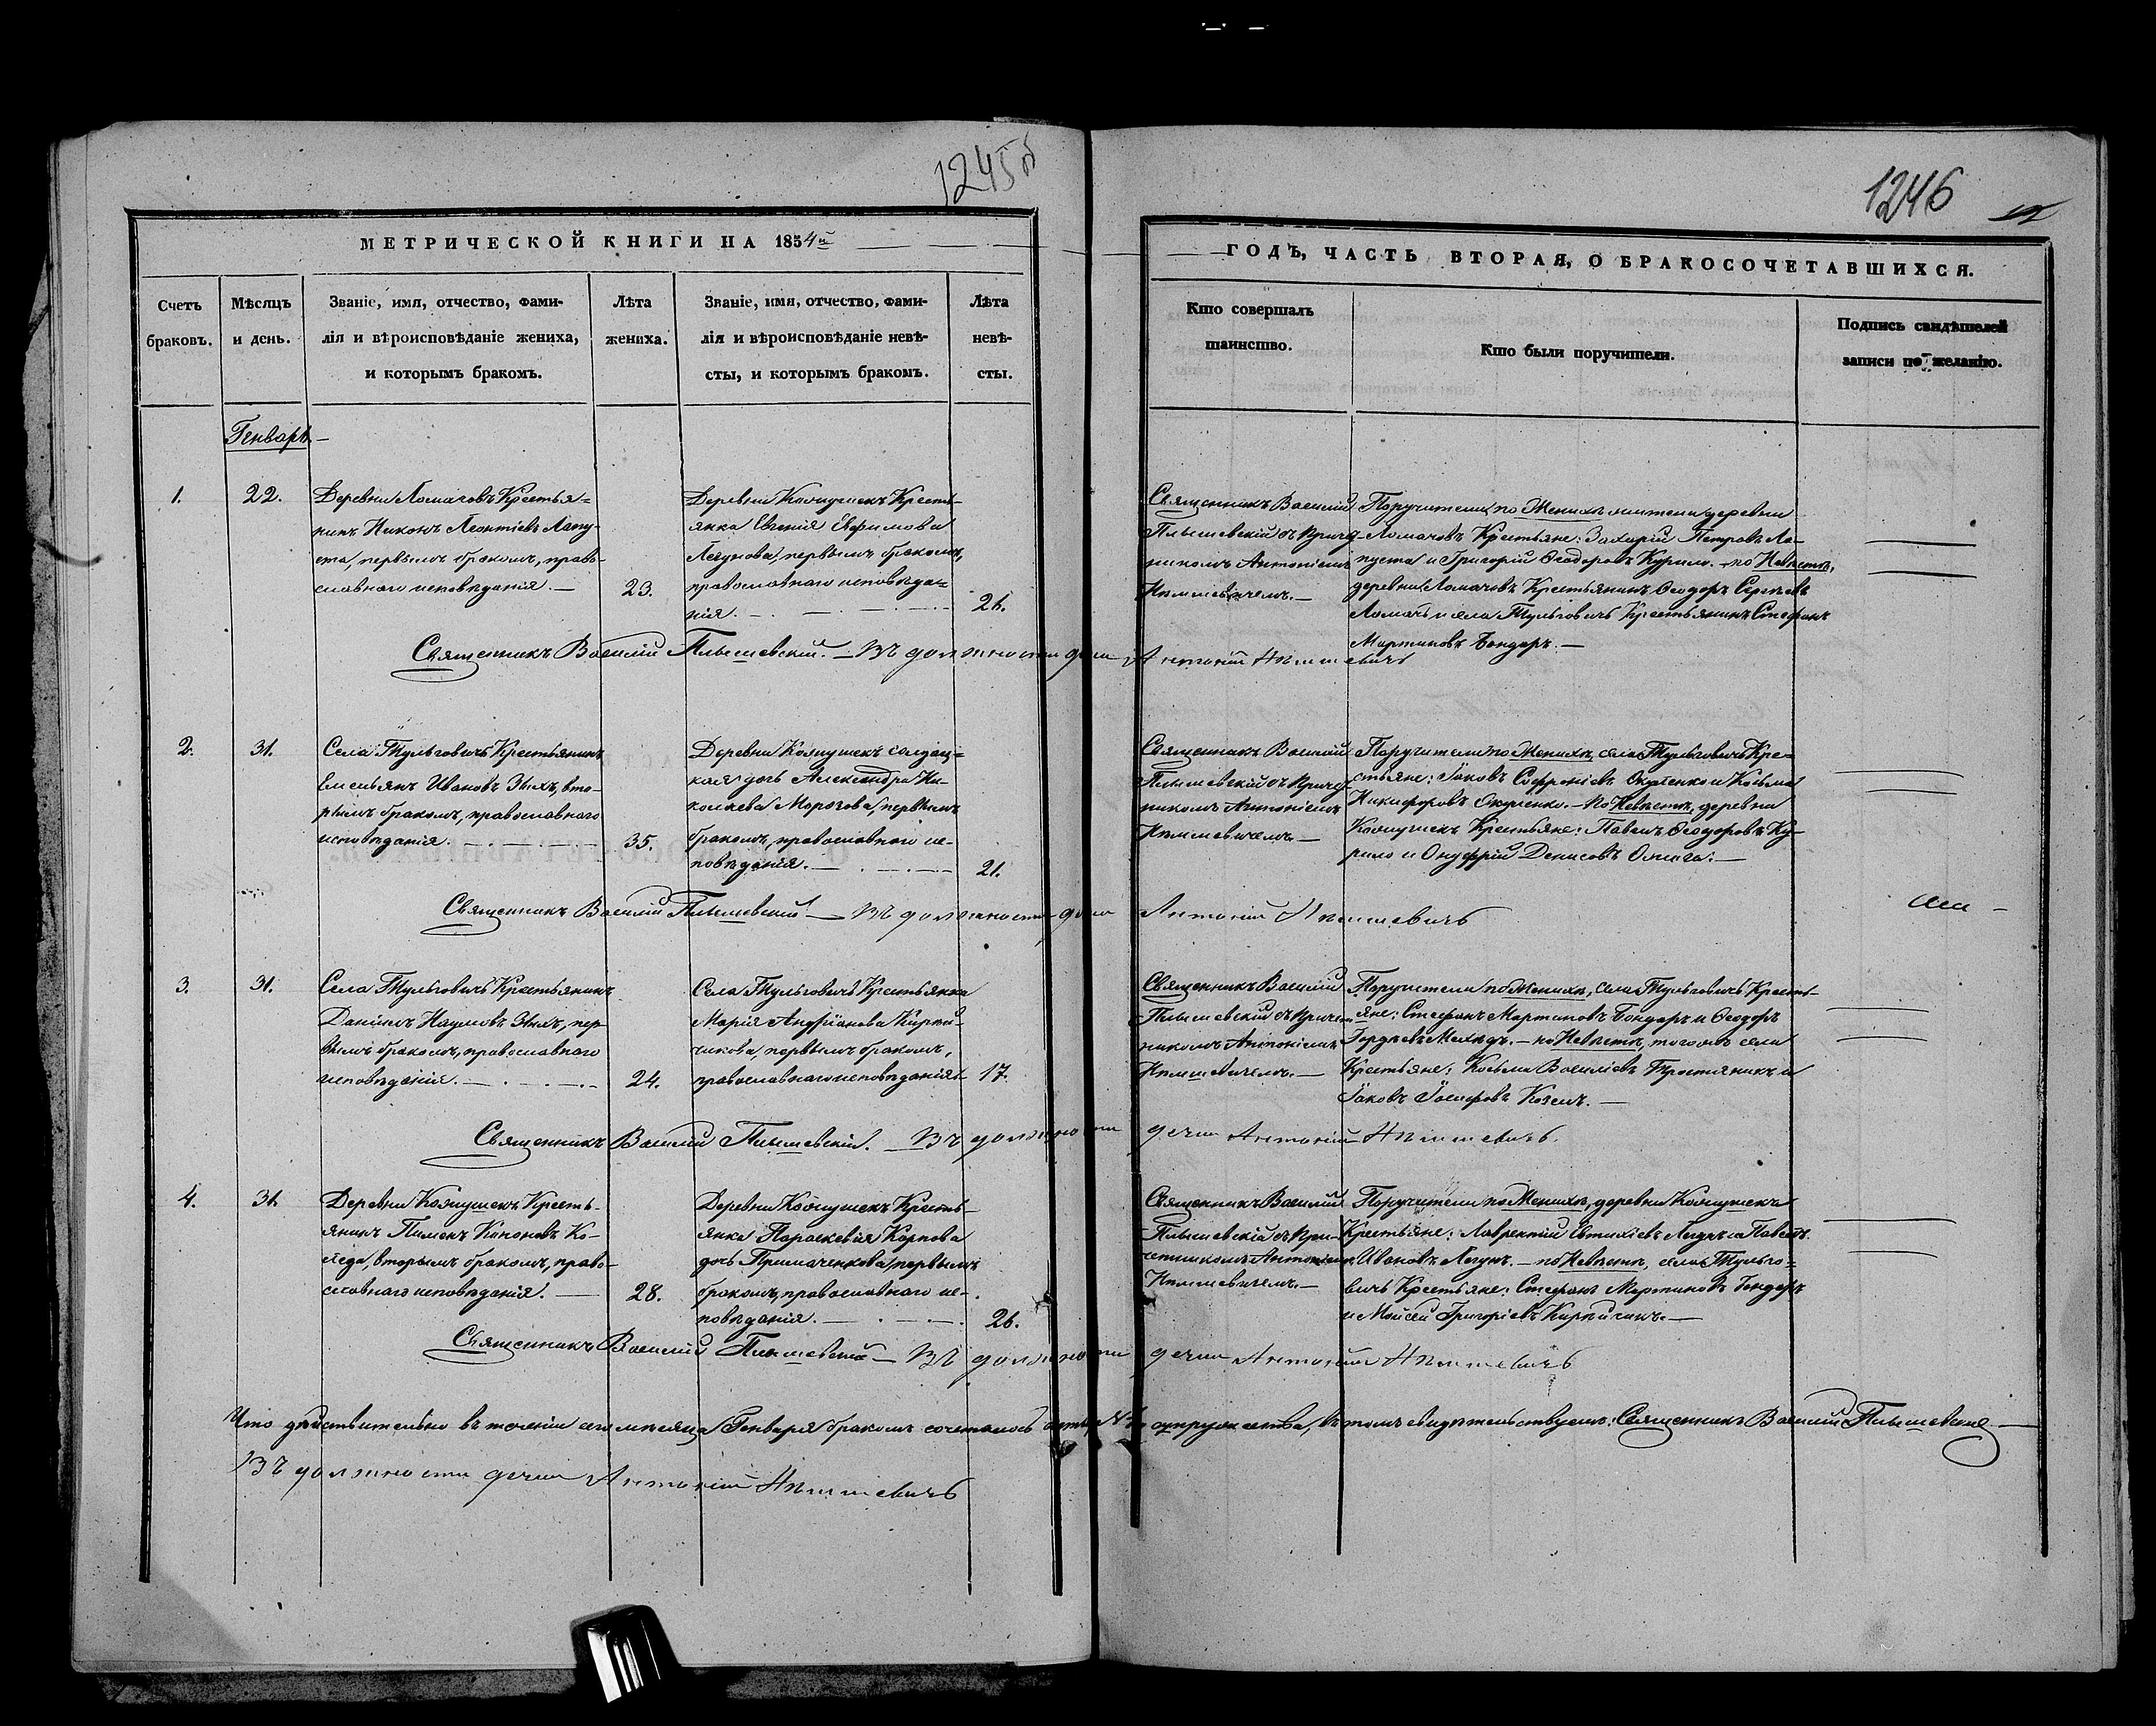 1245об
1246
МЕТРИЧЕСКОЙ КНИГИ НА 1854й
ГОДЪ, ЧАСТЬ ВТОРАЯ, О БРАКОСОЧЕТАВШИХСЯ.
Счетъ
браковъ.
Мѣсяцъ
и день.
Званіе, имя, отчество, фами-
лія и вѣроисповѣданіе жениха,
и которымъ бракомъ.
Лѣта
жениха.
Званіе, имя, отчество, фами-
лія и вѣроисповѣданіе невѣ-
сты, и которымъ бракомъ.
Лѣта
невѣ-
сты.
Кто совершалъ
таинство.
Кто были поручители.
Подпись свидѣтелей
записи по желанію.
Генварь.
1.
22.
Деревни Ломачовъ Крестья-
нинъ Никонъ Леонтіевъ Лапу-
ста, первымъ бракомъ, право-
славнаго исповѣданія.
23.
Деревни Кожушекъ Кресть-
янка Евгенія Евфимова
Легунова, первымъ бракомъ,
православнаго исповѣда-
нія.
21.
Священникъ Василій
съ Причет-
никомъ Антоніемъ
Поручители: по Женихѣ жители деревни
Ломачовъ Крестьяне: Захарій Петровъ Ла-
пуста и Григорій Ѳеодоровъ Курило. по Невѣстѣ,
деревни Ломачовъ Крестьянинъ Ѳеодоръ Сергѣевъ
Ломачъ и села Тульговичъ Крестьянинъ Стефанъ
Мартиновъ Бондарь.
Священникъ Василій Въ должности дьяч Антоній
2.
31.
Села Тульговичъ Крестьянинъ
Емельянъ Ивановъ Зыхъ, вто-
рымъ бракомъ, православнаго
исповѣданія.
35.
Деревни Кожушекъ солдац-
кая дочь Александра Ни-
колаева Морозова, первымъ
бракомъ, православнаго ис-
повѣданія.
21.
Священникъ Василій
съ Причет-
никомъ Антоніемъ
Поручители: по Женихѣ, села Тульговичъ Кре-
стьяне: Іаковъ Софроніевъ и Козьма
Никифоровъ По Невѣстѣ, деревни
Кожушекъ Крестьяне: Павелъ Ѳеодоровъ Ку-
рило и Онуфрій Денисовъ
Священникъ Василій Въ должности дьяч Антоній
3.
31.
Села Тульговичъ Крестьянинъ
Даніилъ Наумовъ Зыхъ, пер-
вымъ бракомъ, православнаго
исповѣданія.
24.
Села Тульговичъ Крестьянка
Марія Андріанова Кирпи-
чикова первымъ бракомъ,
православнаго исповѣданія.
17.
Священникъ Василій
съ Причет-
никомъ Антоніемъ
Поручители: по Женихѣ, села Тульговичъ Кресть-
яне: Стефанъ Мартиновъ Бондарь и Ѳеодоръ
Гордѣевъ по Невѣстѣ, тогожъ села
Крестьяне: Козьма Василіевъ и
Іаковъ Іосифовъ Козелъ.
Священникъ Василій Въ должности дьяч Антоній
4.
31.
Деревни Кожушекъ Кресть-
янинъ Пименъ Кононовъ Ко-
ляда, вторымъ бракомъ, право-
славнаго исповѣданія.
28.
Деревни Кожушекъ Кресть-
янка Параскевія Карпова
дочь Примаченкова, первымъ
бракомъ, православнаго ис-
повѣданія.
26.
Священникъ Василій
съ При-
четникомъ Антоніемъ
Поручители: по Женихѣ, деревни Кожушекъ
Крестьяне: Лаврентій Евтихіевъ Легунъ и Павелъ
Ивановъ Легунъ. по Невѣстѣ, села Тульго-
вичъ Крестьяне: Стефанъ Мартиновъ Бондарь
и Моисей Григоріевъ Кирпичикъ.
Священникъ Василій Въ должности дьяч Антоній
Что дѣйствительно въ теченіи сего мѣсяца Генваря бракомъ сочеталось супружества, въ томъ свидѣтельствуемъ: Священникъ Василій
Въ должности дьяч Антоній